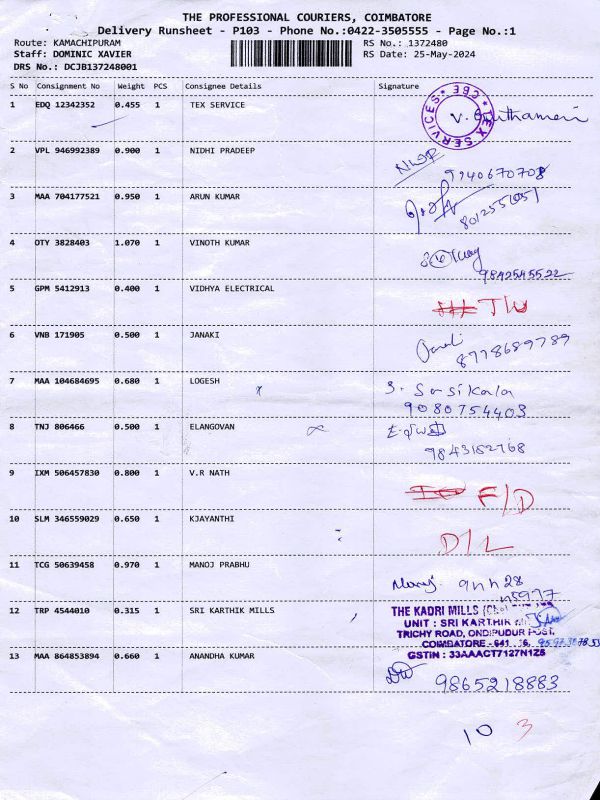 THE PROFESSIONAL COURIERS, COIMBATORE
Delivery Runsheet - P103 - Phone No.:0422-3505555 - Page No.:1
Route: KAMACHIPURAM RS No.: 1372480
Staff: DOMINIC XAVIER RS Date: 25-May-2024
DRS No.: DCJB137248001
S No Consignment No Weight PCS Consignee Details Signature
1 EDQ 12342352 0.455 1 TEX SERVICE
* TEX SERVICES * CBE
2 VPL 946992389 0.900 1 NIDHI PRADEEP
9940670708
3 MAA 704177521 0.950 1 ARUN KUMAR
4 OTY 3828403 1.070 1 VINOTH KUMAR
9842545522
5 GPM 5412913 0.400 1 VIDHYA ELECTRICAL
6 VNB 171905 0.500 1 JANAKI
8778689789
7 MAA 104684695 0.680 1 LOGESH S. Sasikala
9080754403
8 TNJ 806466 0.500 1 ELANGOVAN
9843182768
9 IXM 506457830 0.800 1 V.R NATH F/D
10 SLM 346559029 0.650 1 KJAYANTHI
D/L
11 TCG 50639458 0.970 1 MANOJ PRABHU
Manoj.
12 TRP 4544010 0.315 1 SRI KARTHIK MILLS
THE KADRI MILLS
UNIT : SRI KARTHIK
TRICHY ROAD, ONDIPUDUR POST,
COIMBATORE - 641
GSTIN : 33AAACT7127N1Z5
13 MAA 864853894 0.660 1 ANANDHA KUMAR
9865218883
10 3